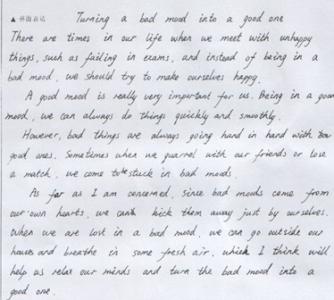 书面表达 Turning a bad mood into a good one
There are times in our life when we meet with unhappy
things, such as failing in exams, and instead of being in a
bad mood, we should try to make ourselves happy.
A good mood is really very important for us. Being in a good
mood, we can always do things quickly and smoothly.
However, bad things are always going hand in hand with
good ones. Sometimes when we quarrel with our friends or lose
a match, we come to stuck in bad moods.
As far as I am concerned, since bad moods come from
our own hearts, we can kick them away just by ourselves.
When we are lost in a bad mood, we can go outside our
houses and breathe in some fresh air, which I think will
help us relax our minds and turn the bad mood into a
good one.